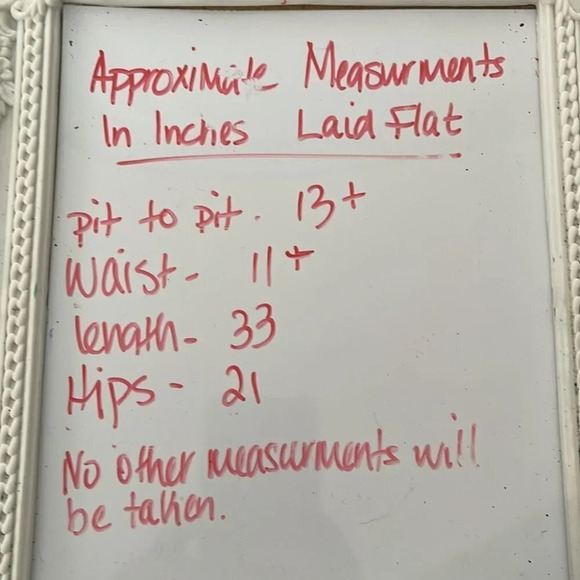 Approximate Measurments
In Inches Laid Flat
Pit to pit. 13+
Waist- 11+
length- 33
Hips- 21
No other measurments will
be taken.